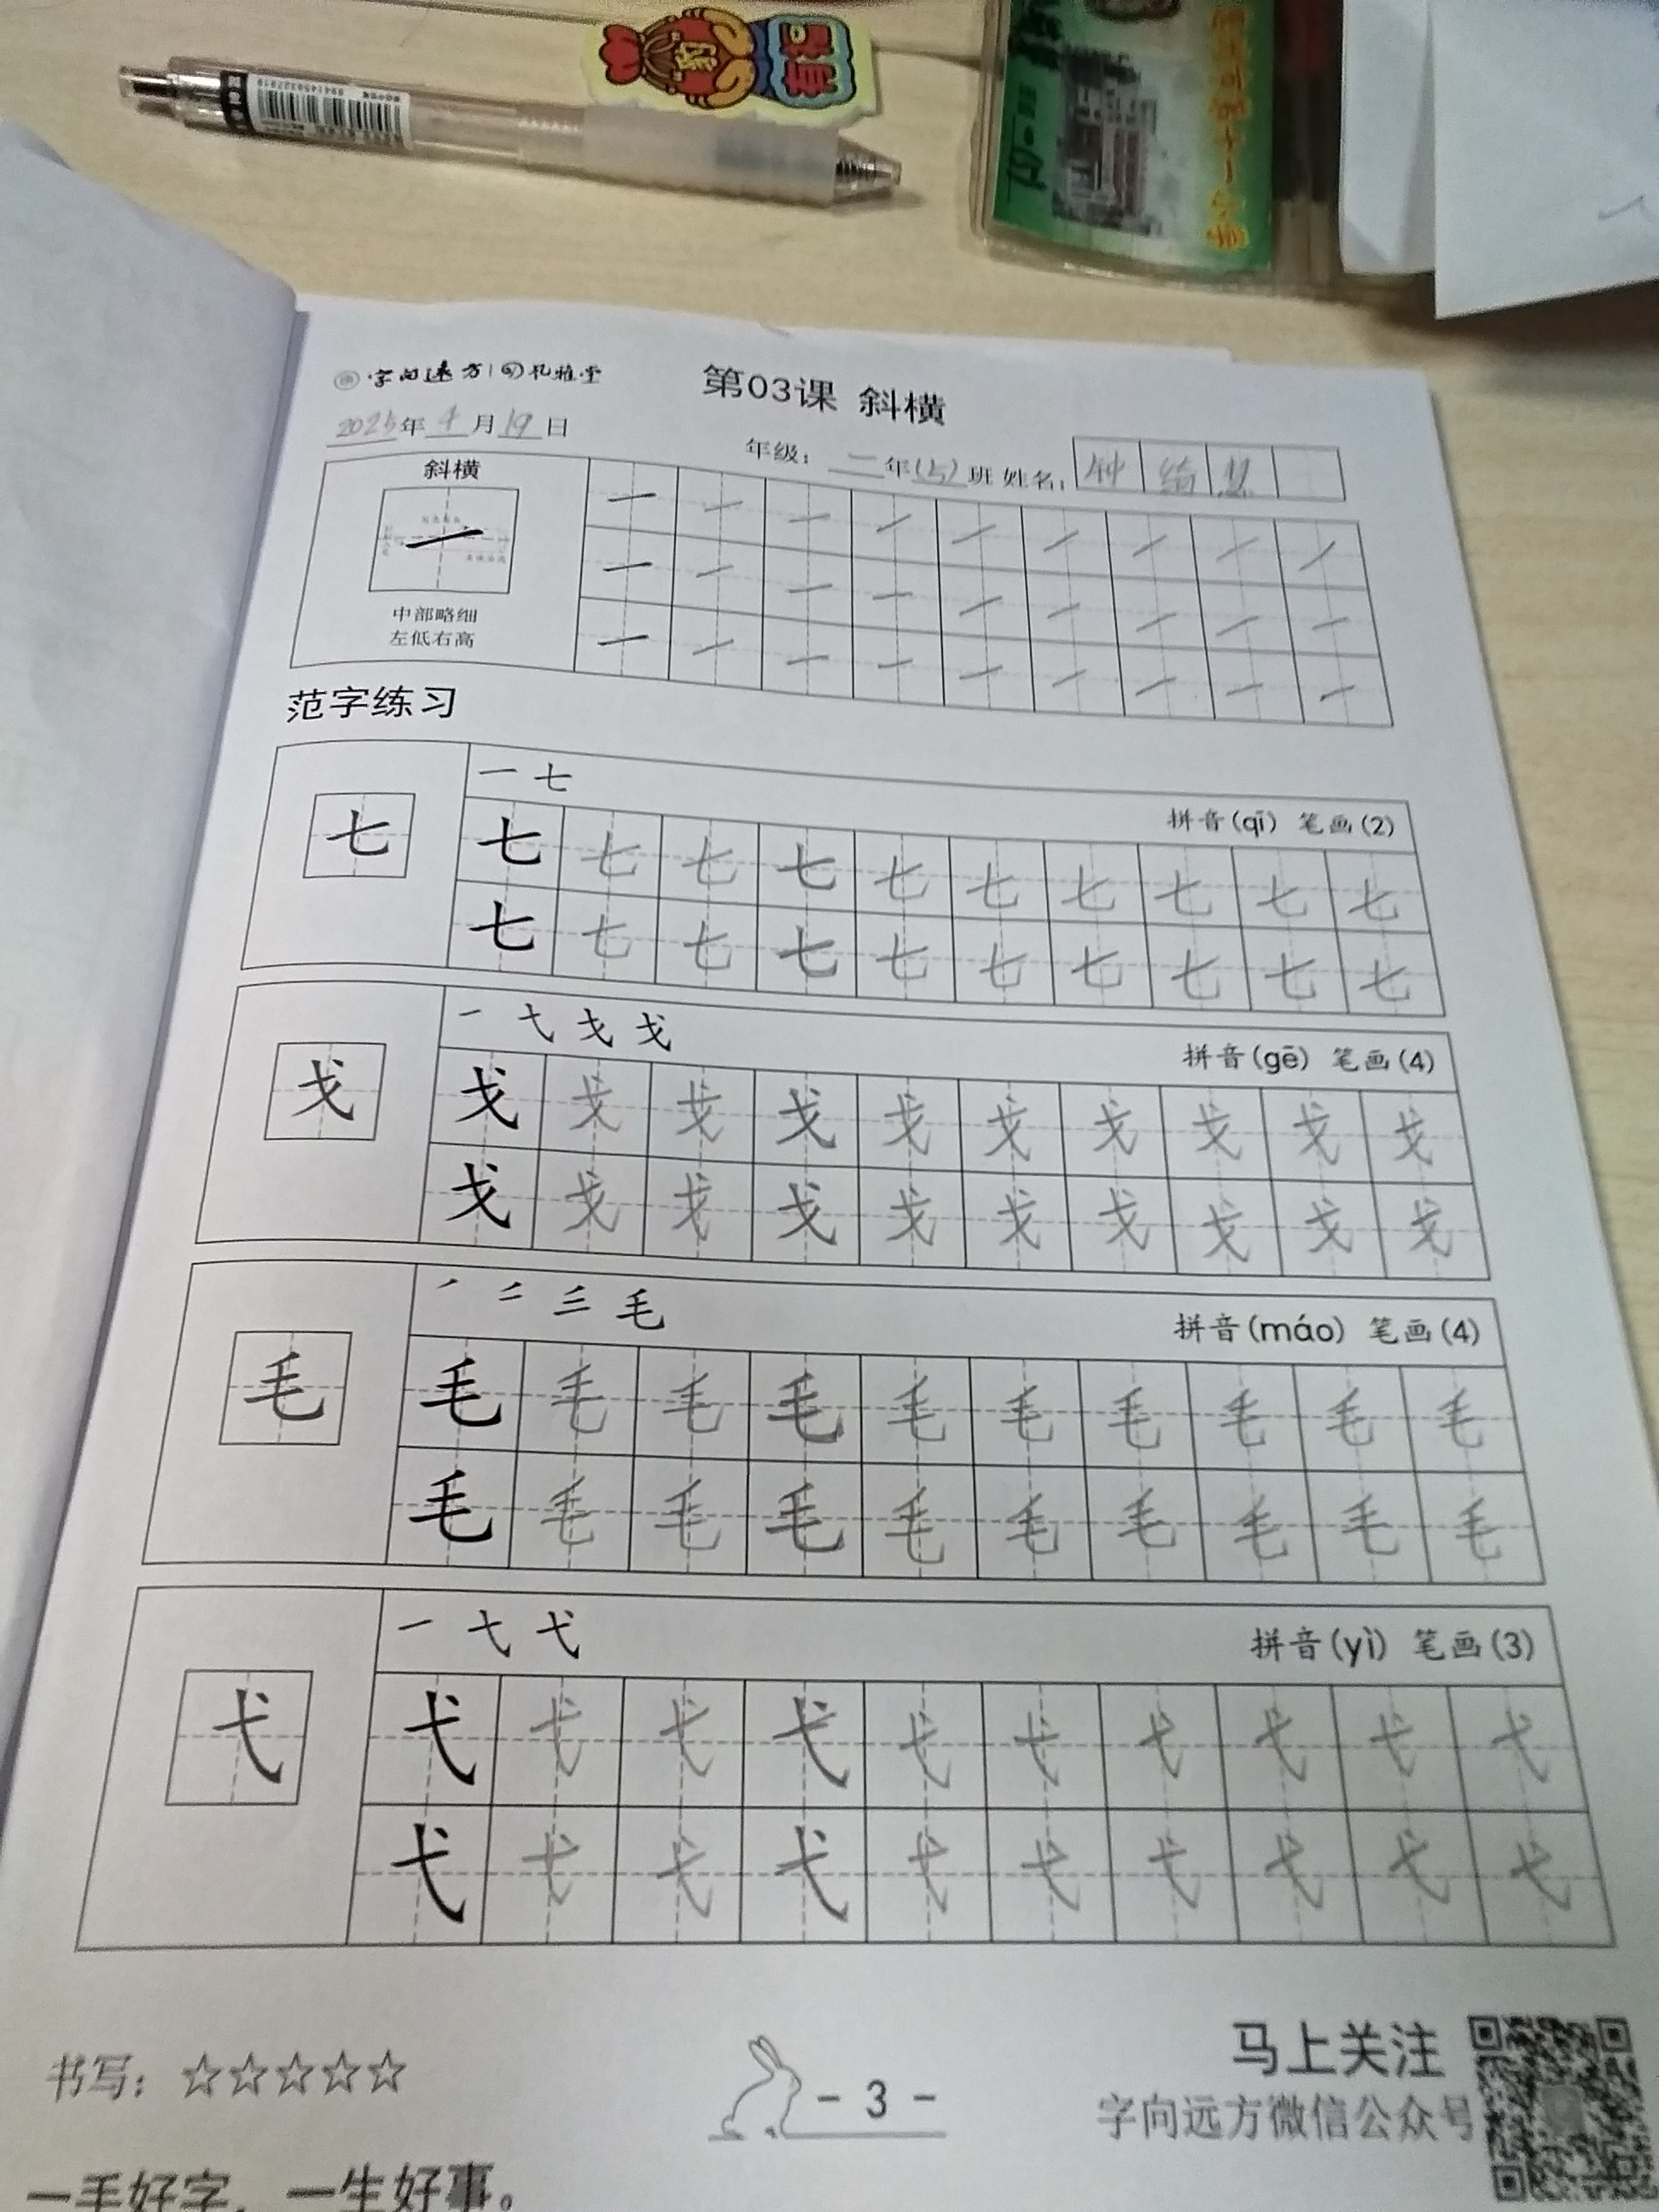 字向远方 孔雅堂
第03课 斜横
2025年4月19日
年级：二年(5)班 姓名：钟
斜横
中部略细
左低右高
范字练习
一 七
拼音(qī) 笔画(2)
七
七 七 七 七 七 七 七 七 七 七
七 七 七 七 七 七 七 七 七 七
拼音(gē) 笔画(4)
戈
戈 戈 戈 戈 戈 戈 戈 戈 戈 戈
戈 戈 戈 戈 戈 戈 戈 戈 戈 戈
毛
拼音(máo) 笔画(4)
毛
毛 毛 毛 毛 毛 毛 毛 毛 毛 毛
毛 毛 毛 毛 毛 毛 毛 毛 毛 毛
一 弋
拼音(yì) 笔画(3)
弋
弋 弋 弋 弋 弋 弋 弋 弋 弋 弋
弋 弋 弋 弋 弋 弋 弋 弋 弋 弋
书写：☆☆☆☆☆
- 3 -
马上关注
字向远方微信公众号
一手好字，一生好事。